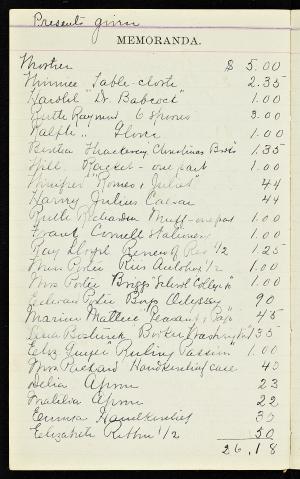 Presents given
MEMORANDA.
Mother $ 5.00
Minnie Table-cloth 2.35
Harold "Dr. Babcock" 1.00
Ruth Raymond 6 spoons 3.00
Ralph " Gloves 1.00
Bertha Thackeray Christmas Book 1.35
Will Racket - one part 1.00
Winifred "Romeo & Juliet" 44
Harry Julius Caesar 44
Ruth Richardson Muff - one part 1.00
Grant Cornell stationery 1.00
Ray Lloyd Review of Rev 1/2 1.25
Miss Porter Riis Autobiog 1/2 1.00
Mrs Porter Briggs "School College" 1.00
Edwin Porter Boys Odyssey 90
Marion Mattice "Peasant & Page" 45
Bostwick Booker Washington 1.35
Eliz "Ruling Passion" 1.00
Mrs Rickard Handkerchief case 45
Delia Apron 23
Matilda Apron 22
Emma Handkerchief 35
Elizabeth Ribbon 1/2 50
26.18